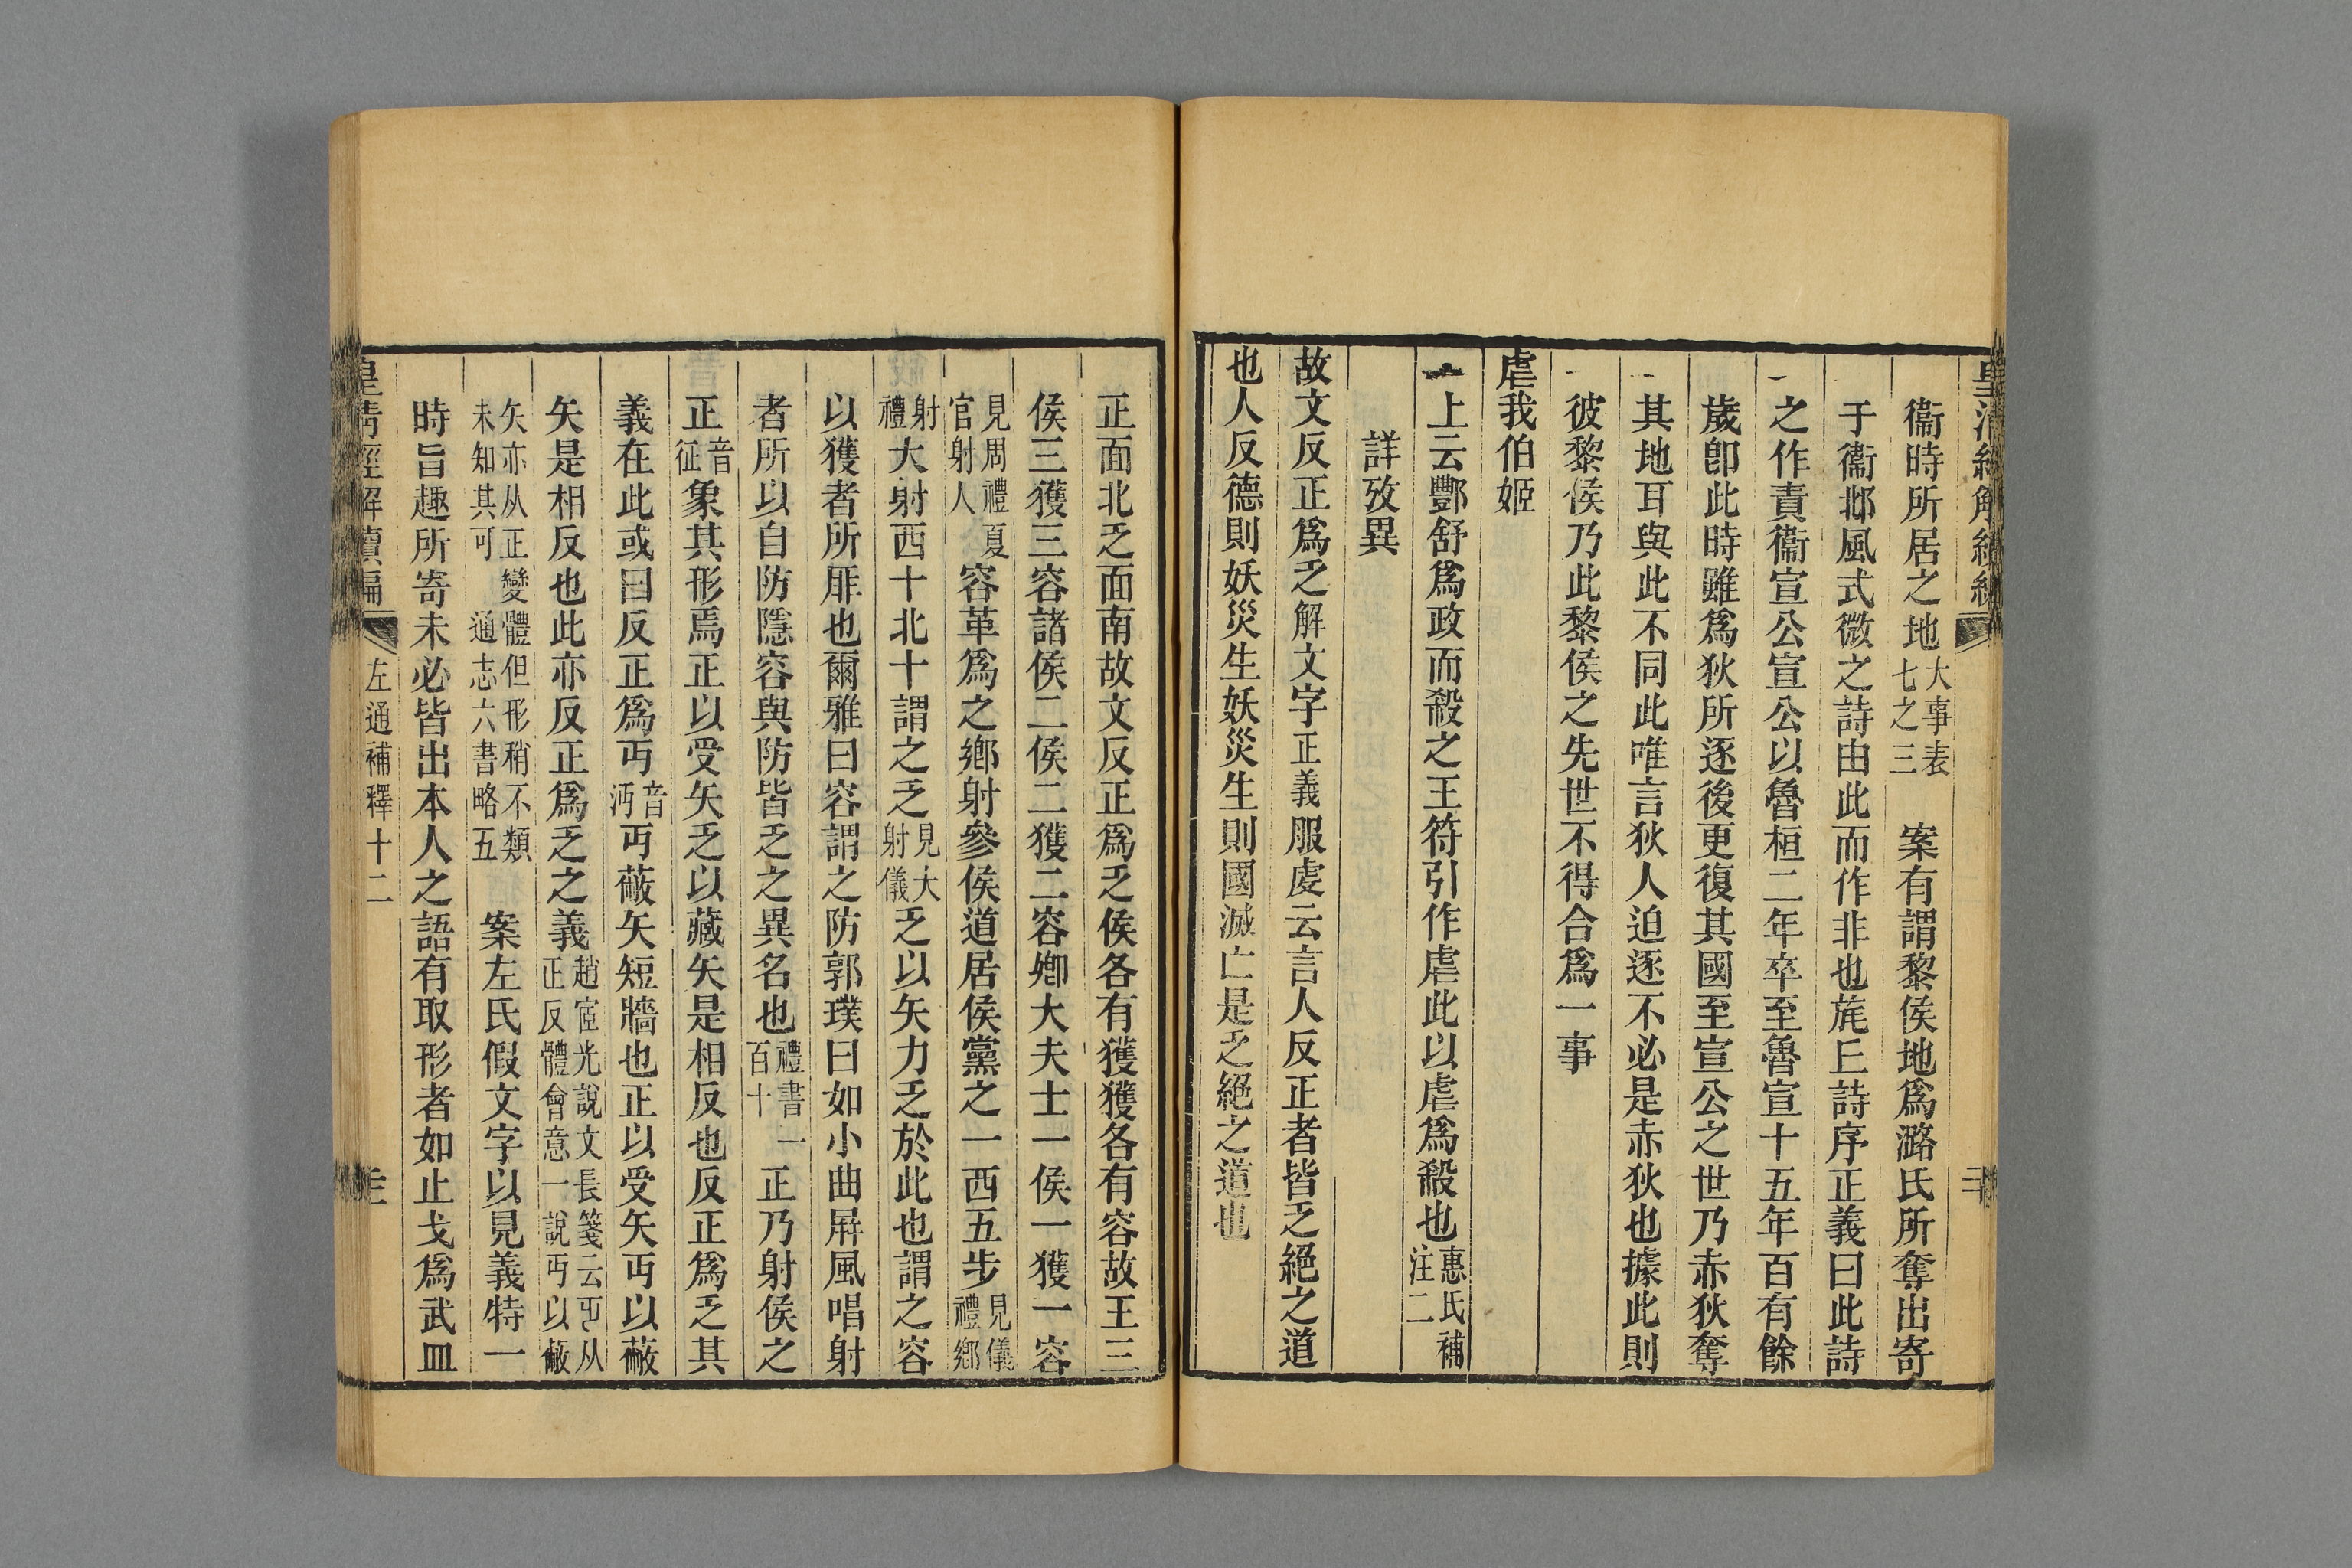 衞時所居之地大事表七之三　案有謂黎侯地爲潞氏所奪出寄
于衞邶風式微之詩由此而作非也旄丘詩序正義曰此詩
之作責衞宣公宣公以魯桓二年卒至魯宣十五年百有餘
歲卽此時雖爲狄所逐後更復其國至宣公之世乃赤狄奪
其地耳與此不同此唯言狄人迫逐不必是赤狄也據此則
彼黎侯乃此黎侯之先世不得合爲一事
虐我伯姬
上云酆舒爲政而殺之王符引作虐此以虐爲殺也惠氏補注二
詳攷異
故文反正爲乏解文字正義服虔云言人反正者皆乏絕之道
也人反德則妖災生妖災生則國滅亡是乏絕之道也
正面北乏面南故文反正爲乏侯各有獲獲各有容故王三
侯三獲三容諸侯二侯二獲二容卿大夫士一侯一獲一容
見周禮夏官射人容革爲之鄉射參侯道居侯黨之一西五步見儀禮鄉
射禮大射西十北十謂之乏見大射儀乏以矢力乏於此也謂之容
以獲者所厞也爾雅曰容謂之防郭璞曰如小曲屛風唱射
者所以自防隱容與防皆乏之異名也禮書一百十正乃射侯之
正音征象其形焉正以受矢乏以藏矢是相反也反正爲乏其
義在此或曰反正爲丏音沔丏蔽矢短牆也正以受矢丏以蔽
矢是相反也此亦反正爲乏之義趙宧光說文長箋云丏从正反體會意一說丏以蔽
矢亦从正變體但形稍不類未知其可　通志六書略五　案左氏假文字以見義特一
時旨趣所寄未必皆出本人之語有取形者如止戈爲武皿
皇清經解續編　左通補釋十二